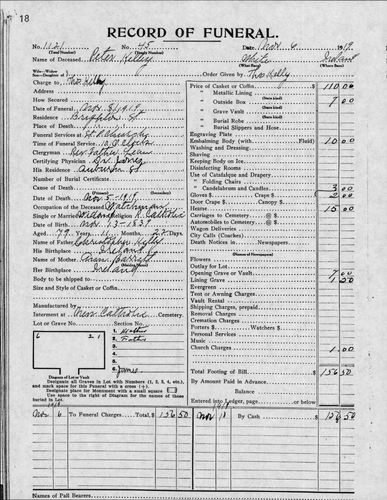 18
RECORD OF FUNERAL.
No. 1121 No. 42 Date, Nov 6 1919.
(Total Number) (Yearly Number)
Name of Deceased Peter Kelley White Ireland
(What Race) (Where Born)
Charge to Thos Kelly Order Given by Thos Kelly
Address
How Secured
Date of Funeral Nov 8, 1919
Residence Brighton St
Place of Death
Funeral Services at
Time of Funeral Service 10 O'Clock
Clergyman Rev Father
Certifying Physician Dr. Jones
His Residence Auburn St
Number of Burial Certificate
Cause of Death
Date of Death Nov 5 - 1919
Occupation of the Deceased Watchman
Single or Married Widower Religion R. Catholic
Date of Birth Nov 13 - 1839
Aged 79 Years 11 Months 22 Days
Name of Father Christopher Kelly
His Birthplace Ireland
Name of Mother Ann
Her Birthplace Ireland
Body to be Shipped to
Size and Style of Casket or Coffin
Manufactured by
Interment at Catholic Cemetery
Lot or Grave No. Section No.
6 2 1
1
2
3
4
5
6 James
Diagram of Lot or Vault
Designate all Graves in Lot with Numbers (1, 2, 3, 4, etc.), and mark space for this Funeral with a cross (+).
Designate place for Monument with a small square
Use space to the right of Diagram for names of those buried in Lot.
Price of Casket or Coffin $ 110 00
" Metallic Lining
" Outside Box 7 00
" Grave Vault
" Burial Robe
" Burial Slippers and Hose
Engraving Plate
Embalming Body (with Fluid) 10 00
Washing and Dressing
Shaving
Keeping Body on Ice
Disinfecting Rooms
Use of Catafalque and Drapery
" Folding Chairs
" Candelabrum and Candles 3 00
Gloves $ 2 00
Door Crape Gloves
Hearse 15 00
Carriages to Cemetery @ $
Automobiles to Cemetery @ $
Wagon Deliveries
City Calls (Coaches)
Death Notices in Newspapers
(Names of Newspapers)
Flowers
Outlay for Lot
Opening Grave or Vault 7 00
Lining Grave 1 50
Evergreen
Tent or Awning Charges
Vault Rental
Shipping Charges, prepaid
Removal Charges
Cremation Charges
Porters $ Watchers $
Personal Services
Music
Church Charges 1 00
Total Footing of Bill $ 156 50
By Amount Paid in Advance
Balance
Entered into Ledger, page or below.
1919 1919
Nov 6 To Funeral Charges Total $ 156 50 Nov By Cash $ 156 50
Names of Pall Bearers